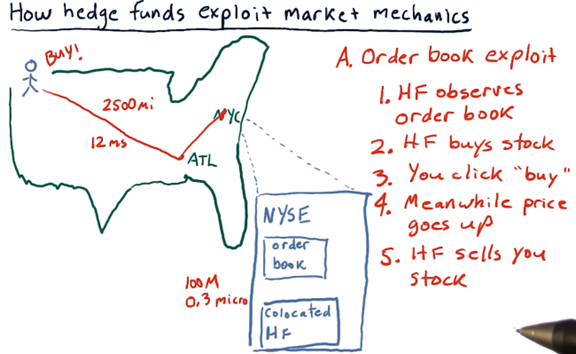 How hedge funds exploit market mechanics
BUY!
2500mi
12ms
NYC
ATL
NYSE
order
book
100M
0.3 micro
Colocated
HF
A. Order book exploit
1. HF observes
order book
2. HF buys stock
3. You click "buy"
4. Meanwhile price
goes up
5. HF sells you
stock